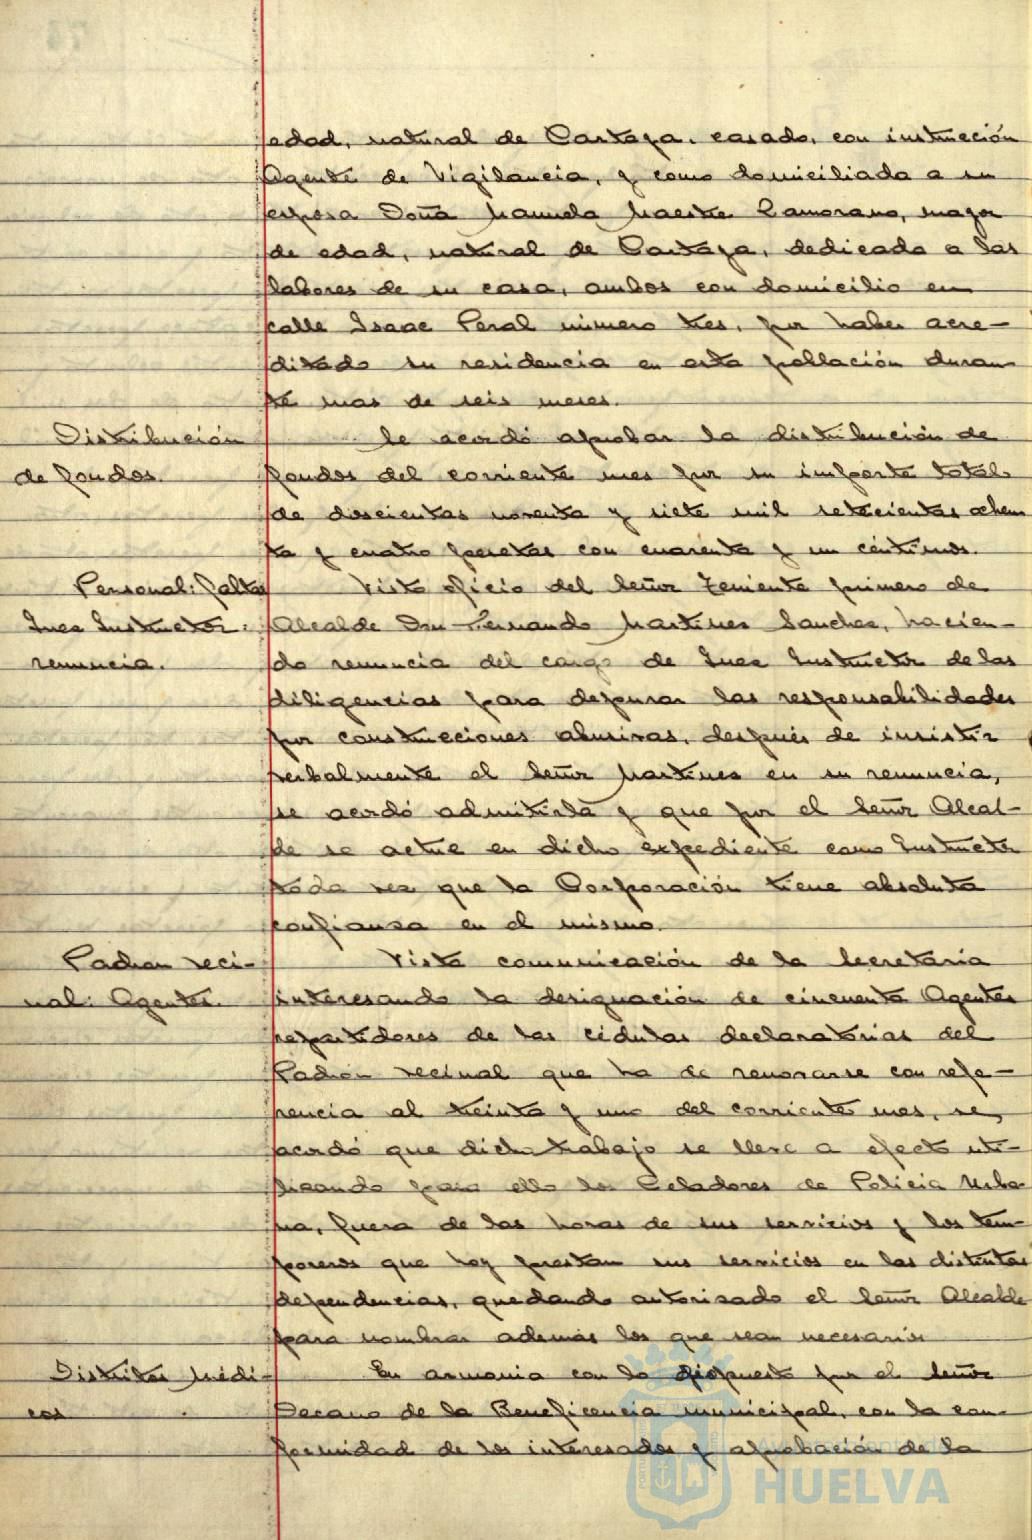 edad, natural de Cartaya, casado, con instrucción
Agente de Vigilancia, y como domiciliada a su
esposa Doña Manuela Maestre Zamorano, mayor
de edad, natural de Cartaya, dedicada a las
labores de su casa, ambos con domicilio en
calle Isaac Peral número tres, por haber acre-
ditado su residencia en esta población duran
te mas de seis meses.
Distribución
de fondos.
Se acordó aprobar la distribución de
fondos del corriente mes por su importe total
de doscientas noventa y siete mil setecientas ochen
ta y cuatro pesetas con cuarenta y un céntimos.
Personal: faltas
Juez Instructor:
renuncia.
Visto oficio del Señor Teniente primero de
Alcalde Don Fernando Martinez Sanchez, hacien-
do renuncia del cargo de Juez Instructor de las
diligencias para depurar las responsabilidades
por construcciones abusivas, después de insistir
verbalmente el Señor Martinez en su renuncia,
se acordó admitirla y que por el Señor Alcal-
de se actue en dicho expediente como Instructor
toda vez que la Corporación tiene absoluta
confianza en el mismo.
Padron veci-
nal: Agentes.
Vista comunicación de la Secretaria
interesando la designación de cincuenta Agentes
repartidores de las cédulas declaratorias del
Padron vecinal que ha de renovarse con refe-
rencia al treinta y uno del corriente mes, se,
acordó que dicho trabajo se lleve a efecto uti-
lizando para ello los Celadores de Policia Urba-
na, fuera de las horas de sus servicios y los tem-
poreros que hoy prestan sus servicios en las distintas
dependencias, quedando autorizado el Señor Alcalde
para nombrar además los que sean necesarios
Distritos Médi-
cos
En armonia con lo dispuesto por el Señor
Decano de la Beneficencia municipal, con la con-
formidad de los interesados y aprobación de la
HUELVA